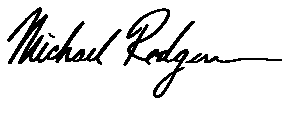 Michael Rodgers